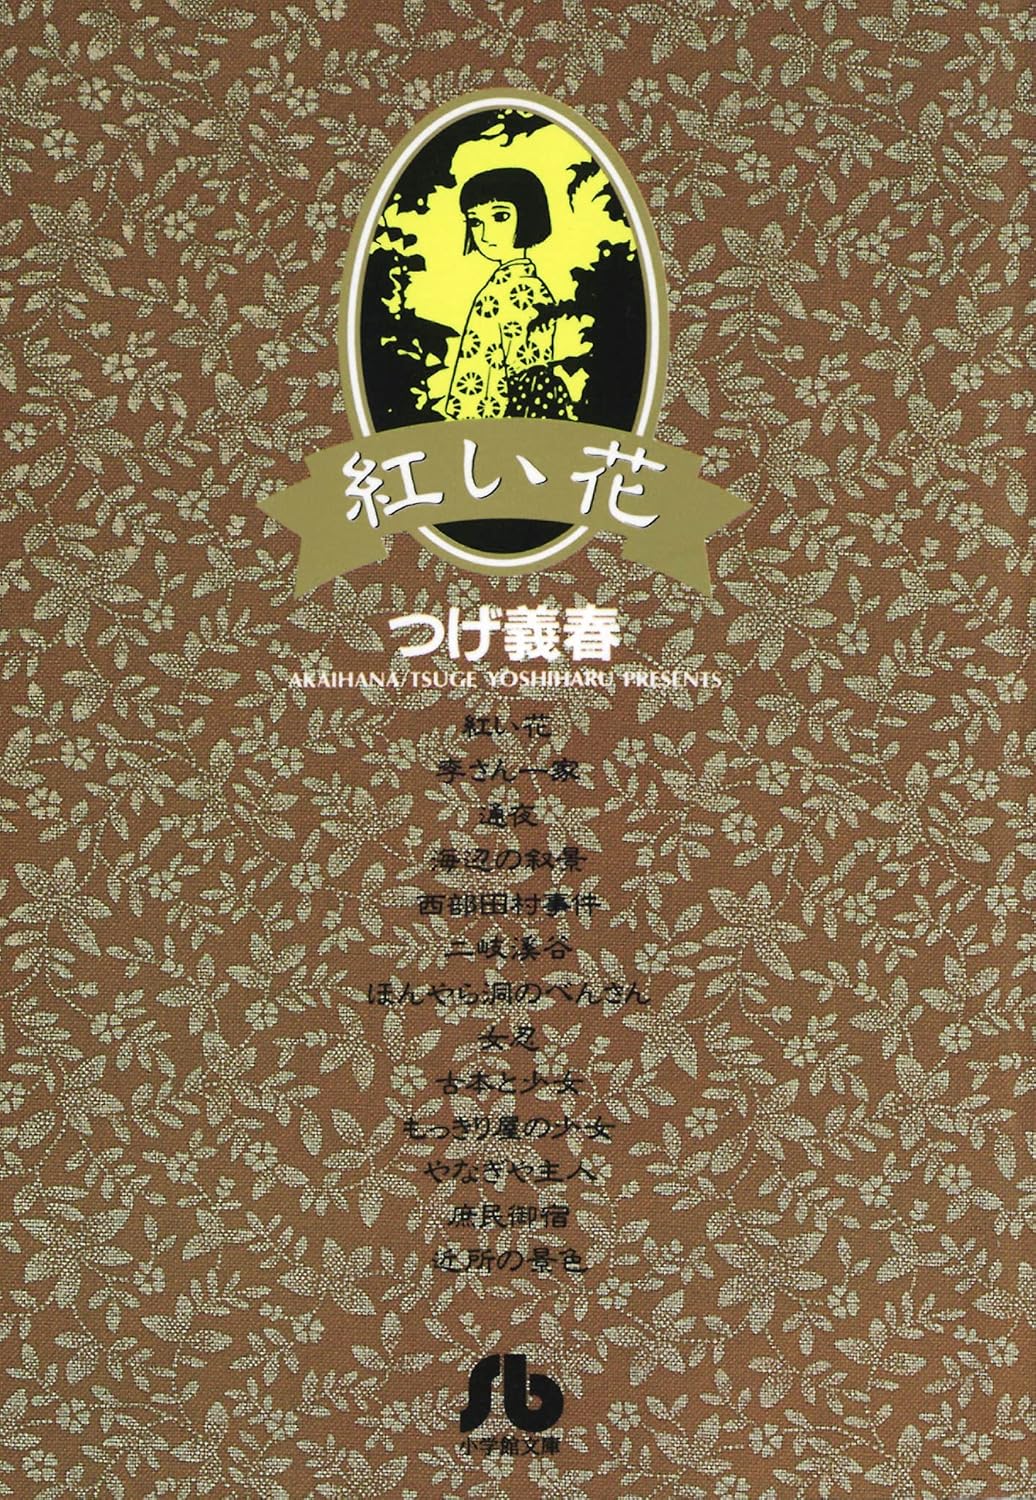 紅い花
つげ義春
AKAIHANA/TSUGE YOSHIHARU PRESENTS
紅い花
李さん一家
通夜
海辺の叙景
西部田村事件
二岐渓谷
ほんやら洞のべんさん
女忍
古本と少女
もっきり屋の少女
やなぎや主人
庶民御宿
近所の景色
sb
小学館文庫